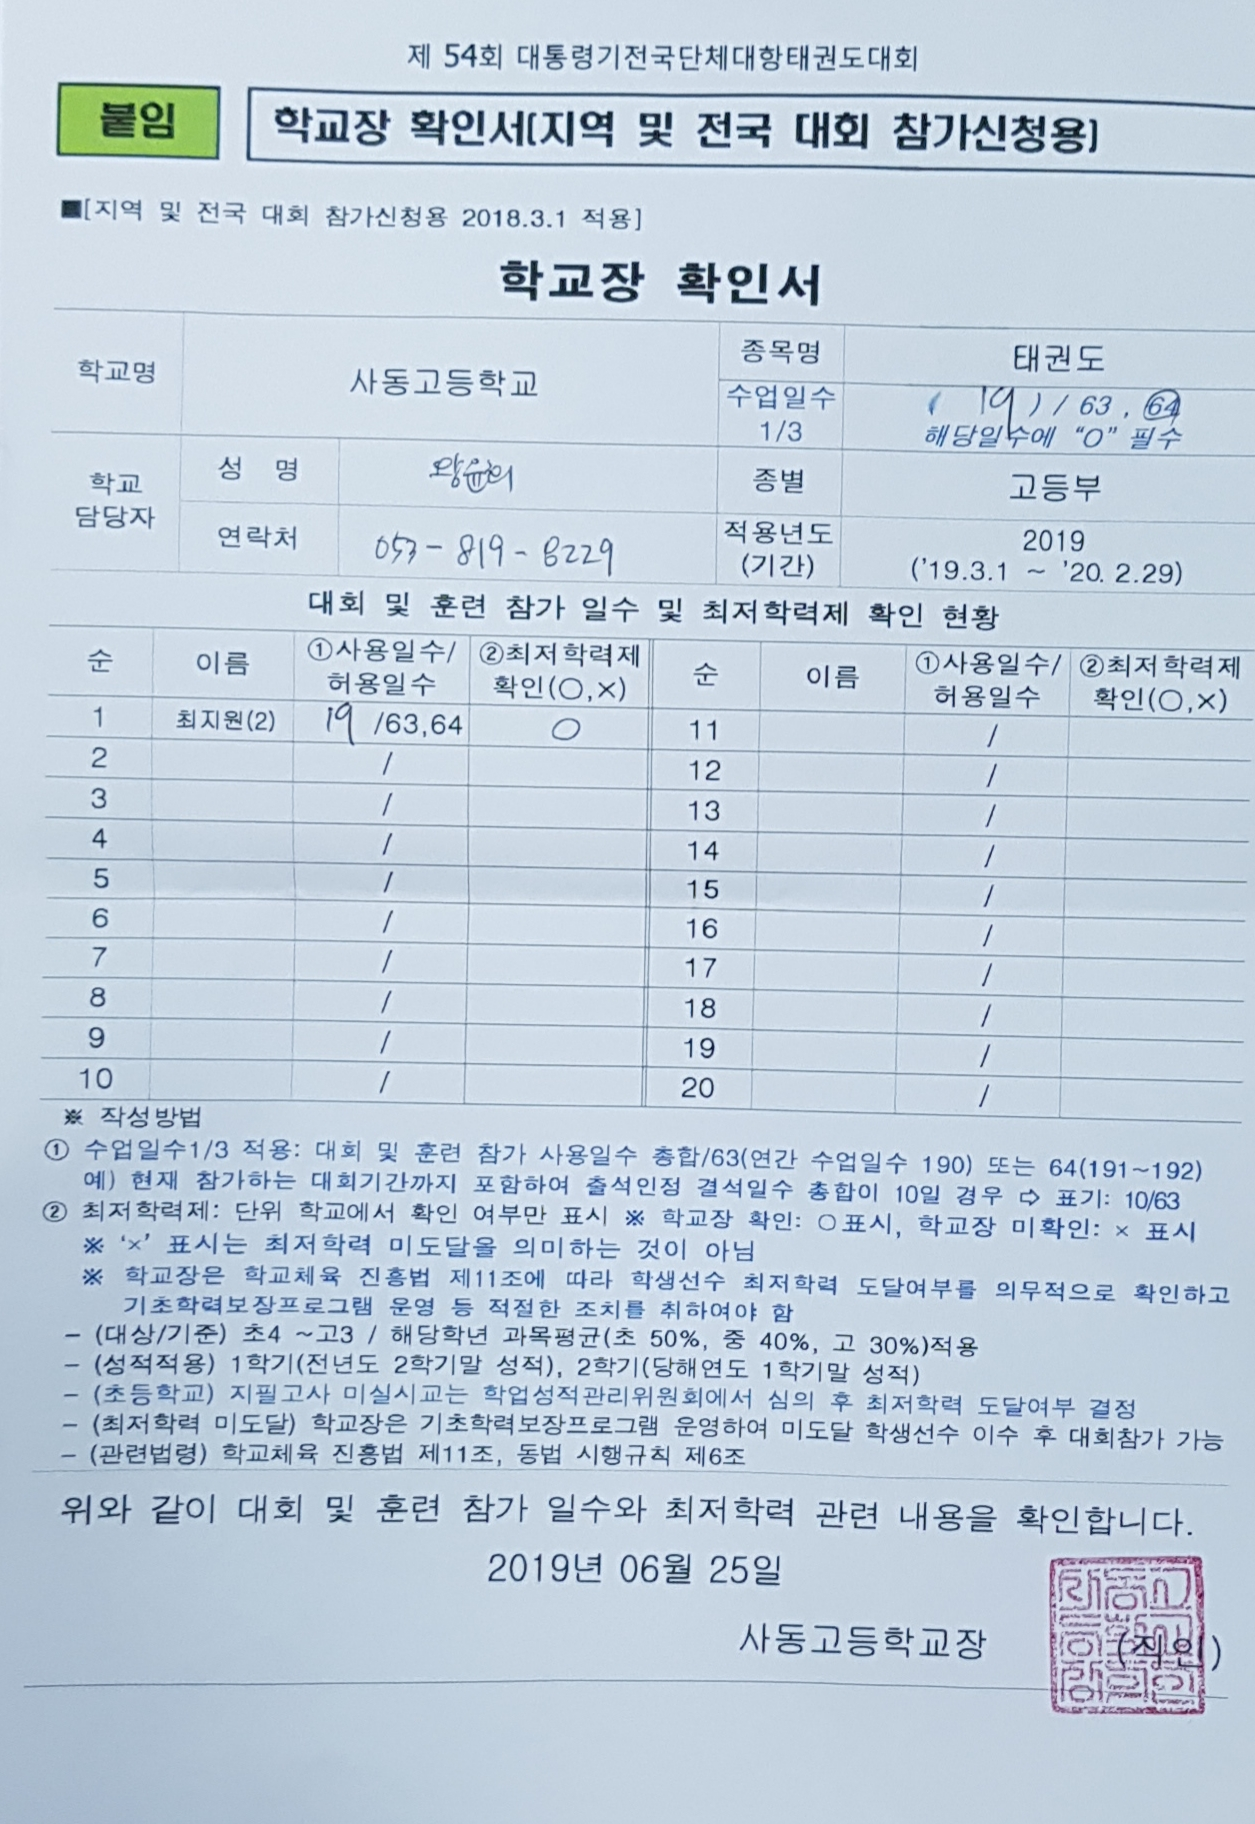 제 54회 대통령기전국단체대항태권도대회
붙임
학교장 확인서(지역 및 전국 대회 참가신청용)
■[지역 및 전국 대회 참가신청용 2018.3.1 적용]
학교장 확인서
학교명 사동고등학교 종목명 태권도
수업일수 1/3 ( 19 ) / 63 , 64
해당일수에 “O” 필수
학교 담당자 성 명 종별 고등부
연락처 053-819-8229 적용년도 (기간) 2019
('19.3.1 ~ '20. 2.29)
대회 및 훈련 참가 일수 및 최저학력제 확인 현황
순 이름 ①사용일수/허용일수 ②최저학력제 확인(○,×) 순 이름 ①사용일수/허용일수 ②최저학력제 확인(○,×)
1 최지원(2) 19 /63,64 ○ 11 /
2 / 12 /
3 / 13 /
4 / 14 /
5 / 15 /
6 / 16 /
7 / 17 /
8 / 18 /
9 / 19 /
10 / 20 /
※ 작성방법
① 수업일수1/3 적용: 대회 및 훈련 참가 사용일수 총합/63(연간 수업일수 190) 또는 64(191~192)
예) 현재 참가하는 대회기간까지 포함하여 출석인정 결석일수 총합이 10일 경우 ⇨ 표기: 10/63
② 최저학력제: 단위 학교에서 확인 여부만 표시 ※ 학교장 확인: ○표시, 학교장 미확인: × 표시
※ ‘×’ 표시는 최저학력 미도달을 의미하는 것이 아님
※ 학교장은 학교체육 진흥법 제11조에 따라 학생선수 최저학력 도달여부를 의무적으로 확인하고
기초학력보장프로그램 운영 등 적절한 조치를 취하여야 함
– (대상/기준) 초4 ~고3 / 해당학년 과목평균(초 50%, 중 40%, 고 30%)적용
– (성적적용) 1학기(전년도 2학기말 성적), 2학기(당해연도 1학기말 성적)
– (초등학교) 지필고사 미실시교는 학업성적관리위원회에서 심의 후 최저학력 도달여부 결정
– (최저학력 미도달) 학교장은 기초학력보장프로그램 운영하여 미도달 학생선수 이수 후 대회참가 가능
– (관련법령) 학교체육 진흥법 제11조, 동법 시행규칙 제6조
위와 같이 대회 및 훈련 참가 일수와 최저학력 관련 내용을 확인합니다.
2019년 06월 25일
사동고등학교장 (직인)